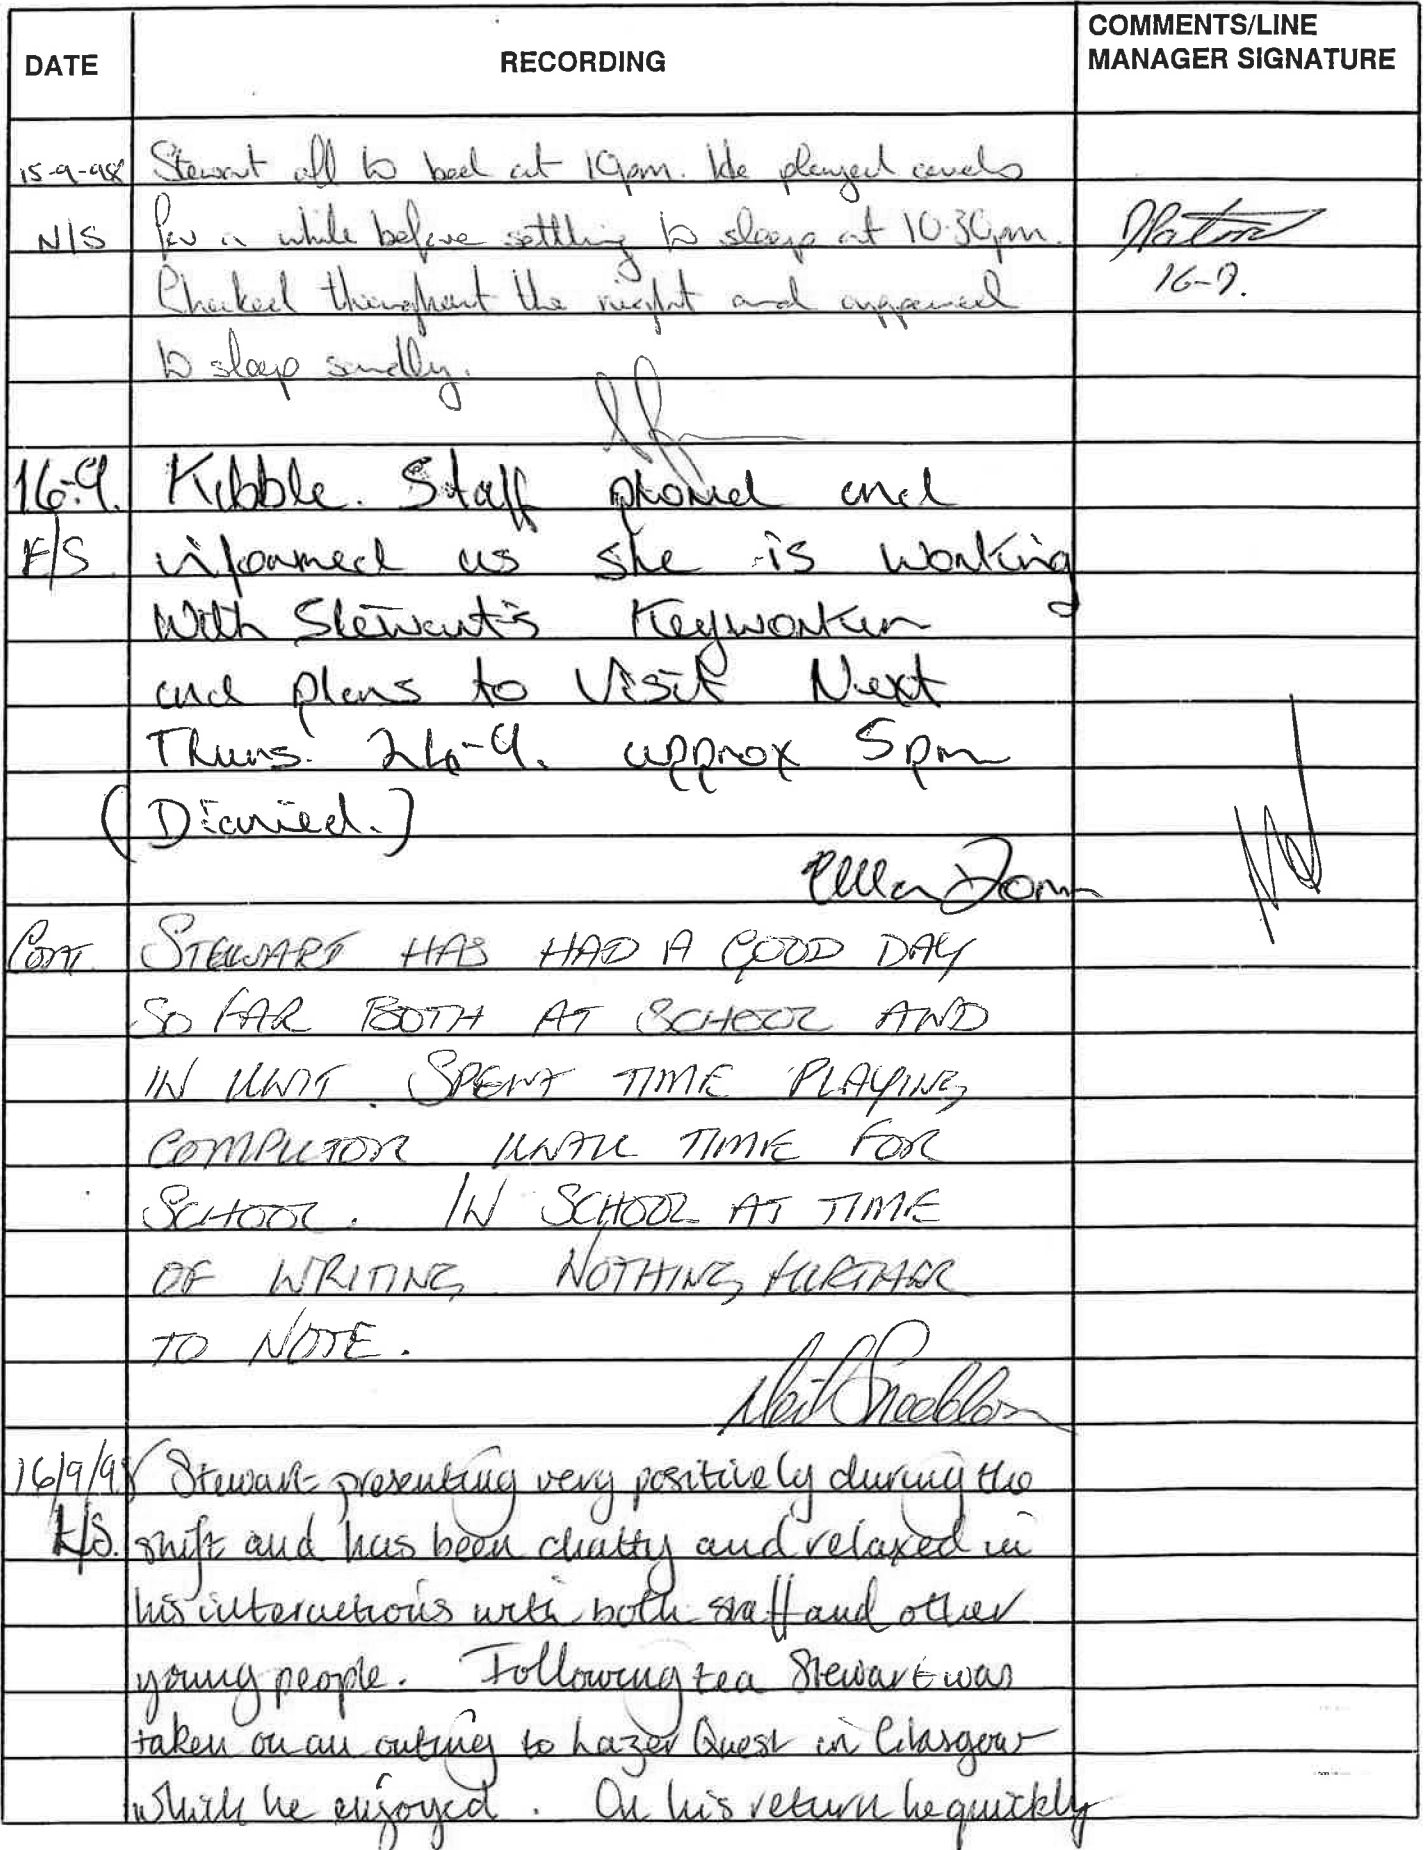 DATE RECORDING COMMENTS/LINE MANAGER SIGNATURE
15-9-98 Stewart off to bed at 10pm. He played cards
N/S for a while before settling to sleep at 10.30pm.
16-9.
Checked throughout the night and appeared
to sleep soundly.
16-9. Kibble. Staff phoned and
E/S informed us she is working
With Stewart's Keyworker
and plans to Visit Next
Thurs. 24-9. approx 5pm
(Diaried.)
Cont. STEWART HAS HAD A GOOD DAY
SO FAR BOTH AT SCHOOL AND
IN UNIT. SPENT TIME PLAYING
COMPUTOR UNTIL TIME FOR
SCHOOL. IN SCHOOL AT TIME
OF WRITING NOTHING FURTHER
TO NOTE.
Neil Sneddon
16/9/98 Stewart presenting very positively during the
L/S. shift and has been chatty and relaxed in
his interactions with both staff and other
young people. Following tea Stewart was
taken on an outing to Lazer Quest in Glasgow
which he enjoyed. On his return he quickly